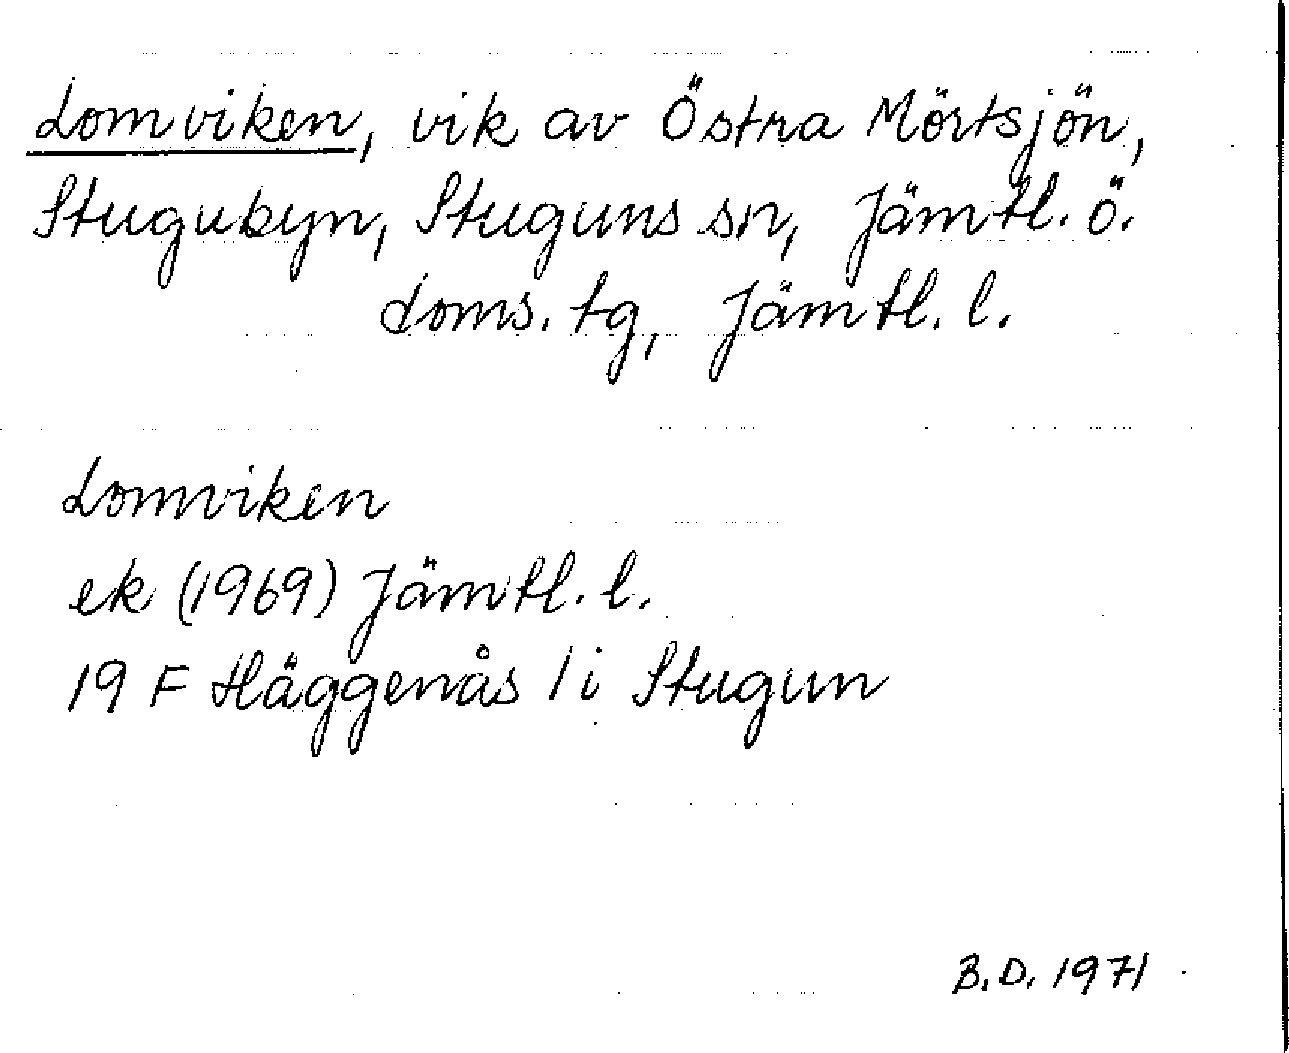 Lomviken, vik av Östra Mörtsjön,
Stugubyn, Stuguns sn, Jämtl. ö.
doms. tg, Jämtl. l.
Lomviken
ek (1969) Jämtl. l.
19 F Häggenås / i Stugun
B.D. 1971